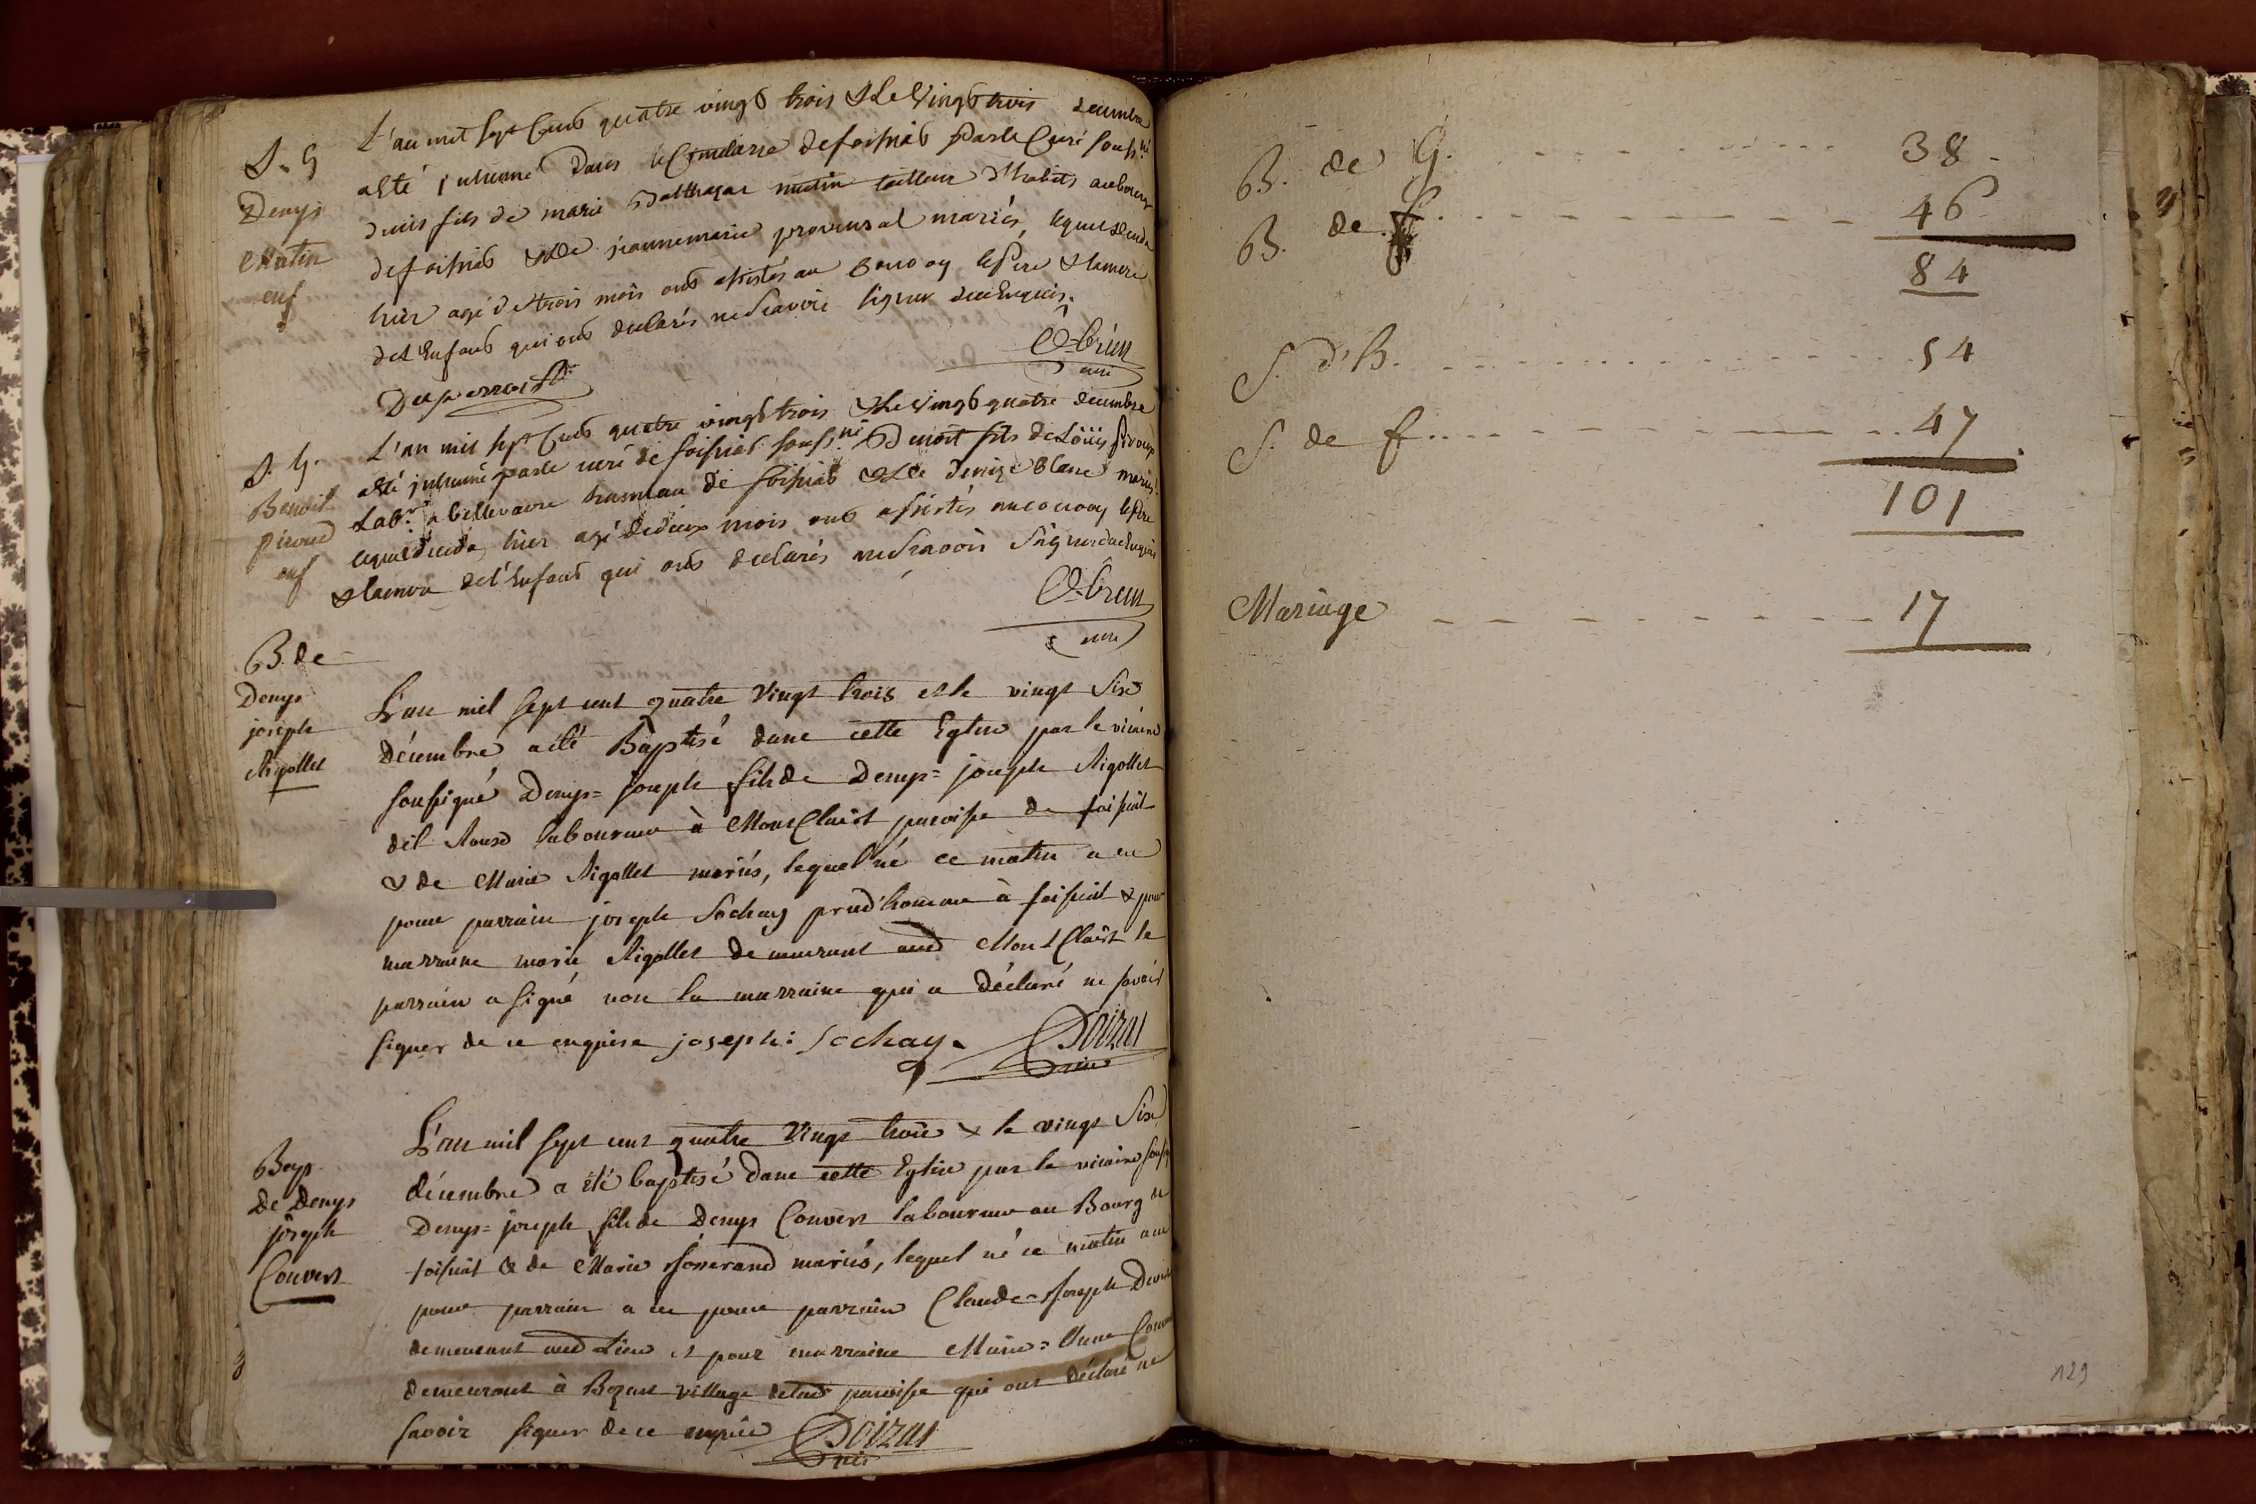 S. G
Denys
Mutin
enf
L'an mil sept Cens quatre vingt trois & Le Vingt trois decembre
a Eté inhumé dans le Cimetiere de foissiat Par le Curé souss.né
denis fils de marie Balthazar mutin tailleur d'habits au bourg
de foissiat & de jeanne marie provensal mariés, lequel decedé
hier agé de trois mois ont assistés au convoy le Pere & la mere
de l'Enfant qui ont declarés ne Scavoir signer de ce Enquis.
Brun
curé
S. G.
Benoit
piroud
enf
L'an mil sept Cens quatre vingt trois & le Vingt quatre decembre
a Eté inhumé par le curé de foissiat souss.né Benoit fils de Loüis piroud
Lab.r a bellevavre hameau de foissiat & de denize Blanc mariés
lequel decedé hier agé de deux mois ont assistés au convoy le Pere
& la mere de l'Enfant qui ont declarés ne Scavoir Signer de ce Enquis
Brun
curé
B. de
Denys
joseph
Rigollet
L'an mil sept cent quatre Vingt trois et le vingt Six
décembre a été Baptisé dans cette Eglise par le vicaire
soussigné Denys= joseph fils de Denys= joseph Rigollet
dit Roux laboureur à MontClaist paroisse de foissiat
& de Marie Rigollet mariés, lequel né ce matin a eu
pour parrain joseph Sochay prud'homme à foissiat & pour
marraine marie Rigollet demeurant aud MontClaist le
parrain a signé non la marraine qui a déclaré ne savoir
signer de ce enquise joseph: Sochay.
Doizat
vic
Bap
De Denys
joseph
Convert
L'an mil sept cent quatre Vingt trois & le vingt Six
décembre a été baptisé dans cette Eglise par le vicaire souss
Denys= joseph fils de Denys Convert laboureur au Bourg de
foissiat & de Marie mariés, lequel né ce matin a eu
pour parrain a eu pour parrain Claude=Joseph
demeurant aud Lieu et pour marraine Marie= Anne
demeurant à village de lad paroisse qui ont déclaré ne
savoir signer de ce enquis Doizat
vic
B. de G. 38
B. de f. 46
84
S. d'h. 54
S. de f 47
101
Mariage 17
129